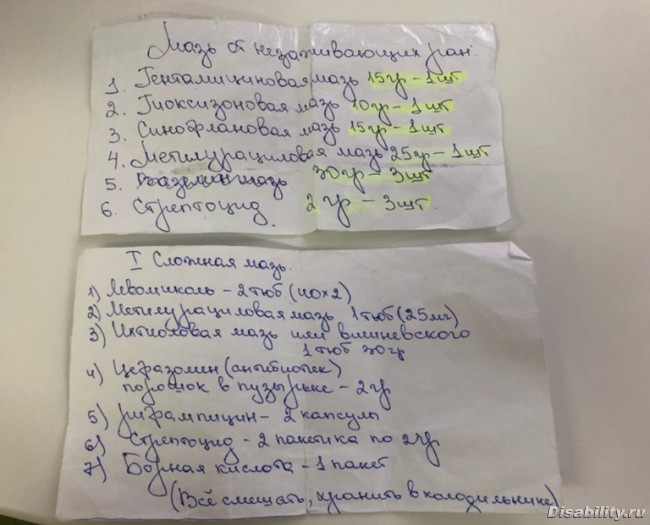 Мазь от незаживающих ран
1. Гентамициновая мазь 15гр – 1шт
2. Гиоксизоновая мазь 10гр – 1шт
3. Синофлановая мазь 15гр – 1шт
4. Метилурациловая мазь 25гр – 1шт
5. мазь 30гр – 3шт
6. Стрептоцид 2гр – 3шт.
I Сложная мазь.
1) Левомиколь – 2 туб. (40х2)
2) Метилурациловая мазь 1 тюб (25мг)
3) Ихтиоловая мазь или вишневского
1 тюб 30гр
4) Цефазолин (антибиотек)
порошок в пузырьке – 2гр
5) рифампицин – 2 капсулы
6) Стрептоцид – 2 пакетика по 2гр
7) Борная кислота – 1 пакет
(Всё смешать, хранить в холодильнике)
Disability.ru